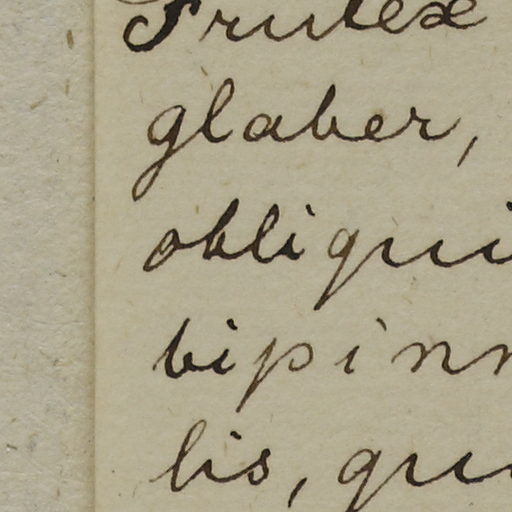 Frutex
glaber,
obliqui
bipinn
lis, qui